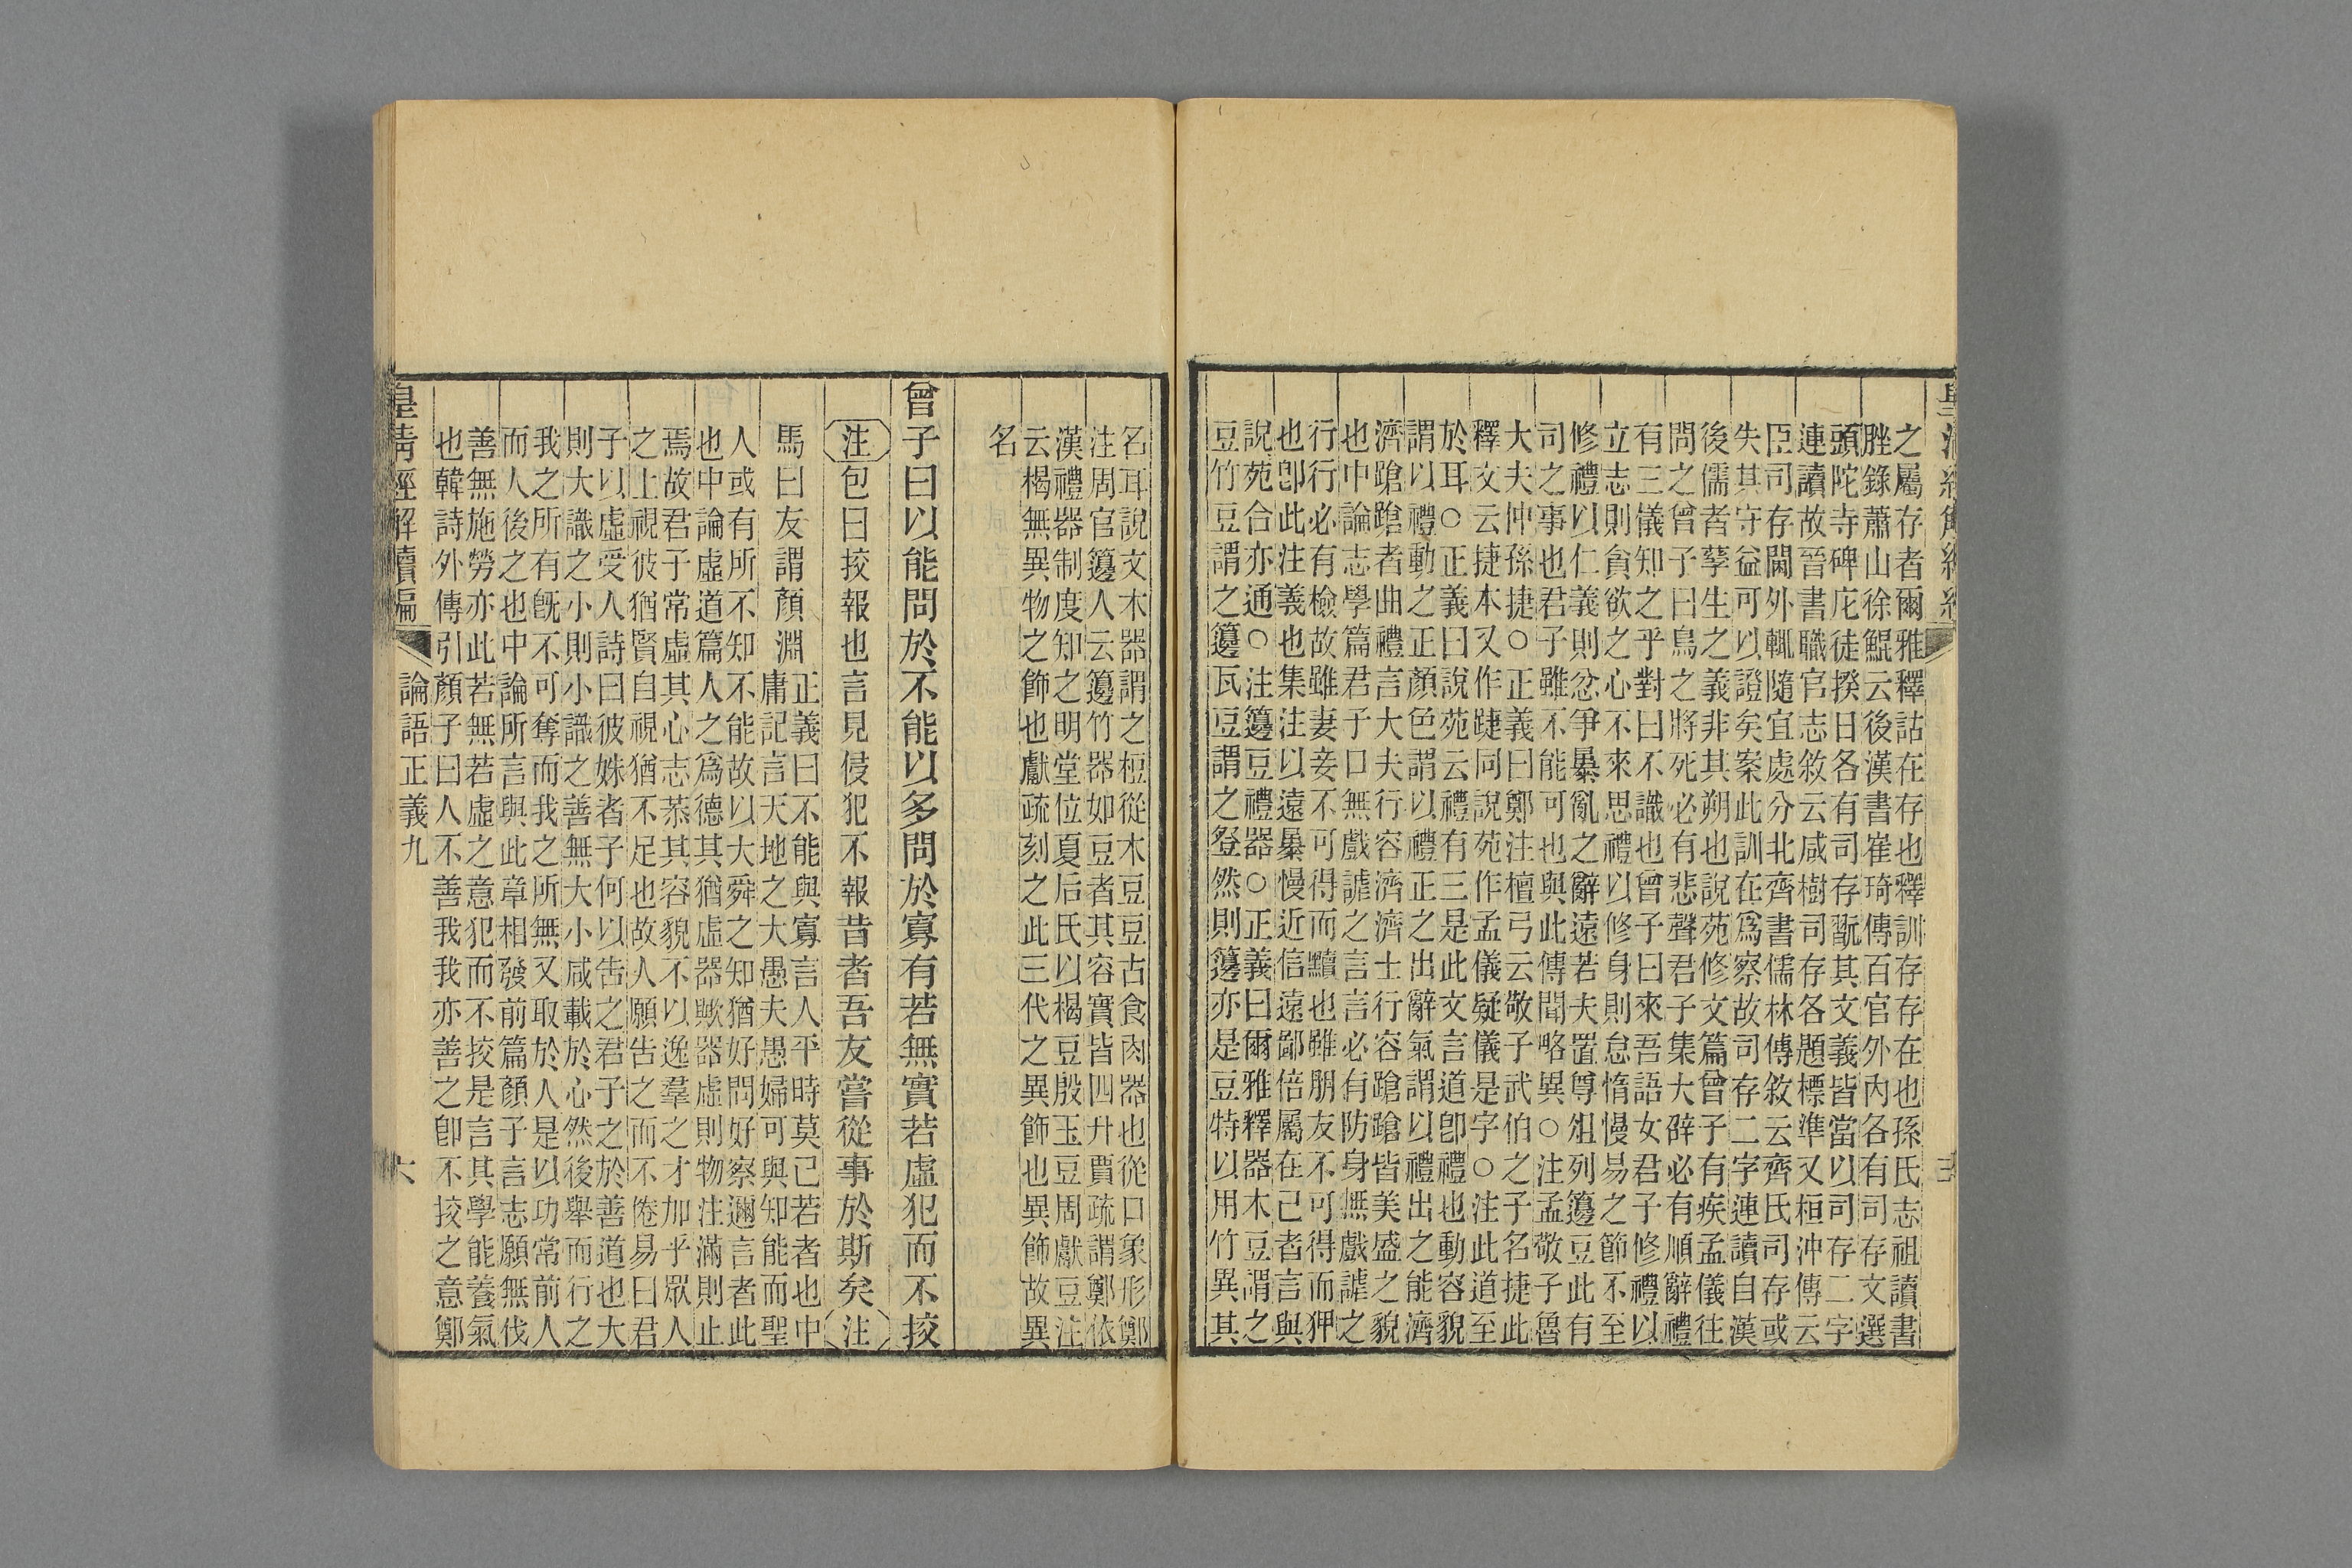 之屬存者爾雅釋詁在存也釋訓存存在也孫氏志祖讀書
脞錄蕭山徐鯤云後漢書崔琦傳百官外內各有司存文選
頭陀寺碑庀徒揆日各有司存翫其文義皆當以司存二字
連讀故晉書職官志敘云咸樹司存各題標準又桓沖傳云
臣司存閫外輒隨宜處分北齊書儒林傳敘云齊氏司存或
失其守益可以證矣案此訓在爲察故司存二字連讀自漢
後儒者孳生之義非其朔也說苑修文篇曾子有疾孟儀往
問之曾子曰鳥之將死必有悲聲君子集大辟必有順辭禮
有三儀知之乎對曰不識也曾子曰來吾語女君子修禮以
立志則貪欲之心不來思禮以修身則怠惰慢易之節不至
修禮以仁義則忿爭暴亂之辭遠若夫置尊俎列籩豆此有
司之事也君子雖不能可也與此傳聞略異○注孟敬子魯
大夫仲孫捷○正義曰鄭注檀弓云敬子武伯之子名捷此
釋文云捷本又作踕同說苑作孟儀疑儀是字○注此道至
於耳○正義曰說苑云禮有三是此文言道卽禮也動容貌
謂以禮動之正顏色謂以禮正之出辭氣謂以禮出之能濟
濟蹌蹌者曲禮言大夫行容濟濟士行容蹌蹌皆美盛之貌
也中論志學篇君子口無戲謔之言言必有防身無戲謔之
行行必有檢故雖妻妾不可得而黷也雖朋友不可得而狎
也卽此注義也集注以遠暴慢近信遠鄙倍屬在己者言與
說苑合亦通○注籩豆禮器○正義曰爾雅釋器木豆謂之
豆竹豆謂之籩瓦豆謂之豋然則籩亦是豆特以用竹異其
名耳說文木器謂之梪從木豆豆古食肉器也從口象形鄭
注周官籩人云籩竹器如豆者其容實皆四升賈疏謂鄭依
漢禮器制度知之明堂位夏后氏以楬豆殷玉豆周獻豆注
云楬無異物之飾也獻疏刻之此三代之異飾也異飾故異
名
曾子曰以能問於不能以多問於寡有若無實若虛犯而不挍
注包曰挍報也言見侵犯不報昔者吾友嘗從事於斯矣注
馬曰友謂顏淵
正義曰不能與寡言人平時莫已若者也中
庸記言天地之大愚夫愚婦可與知能而聖
人或有所不知不能故以大舜之知猶好問好察邇言者此
也中論虛道篇人之爲德其猶虛器歟器虛則物注滿則止
焉故君子常虛其心志恭其容貌不以逸羣之才加乎眾人
之上視彼猶賢自視猶不足也故人願告之而不倦易曰君
子以虛受人詩曰彼姝者子何以告之君子之於善道也大
則大識之小則小識之善無大小咸載於心然後舉而行之
我之所有旣不可奪而我之所無又取於人是以功常前人
而人後之也中論所言與此章相發前篇顏子言志願無伐
善無施勞亦此若無若虛之意犯而不挍是言其學能養氣
也韓詩外傳引顏子曰人不善我我亦善之卽不挍之意鄭
皇清經解續編
論語正義九
六